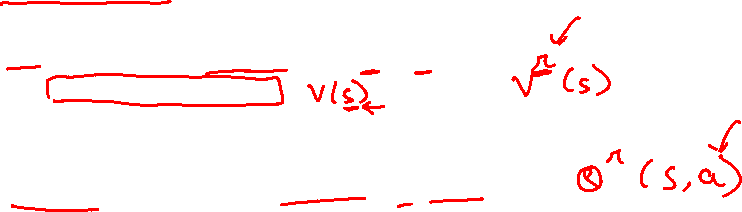 V(s) V^π(s)
Q^π(s,a)